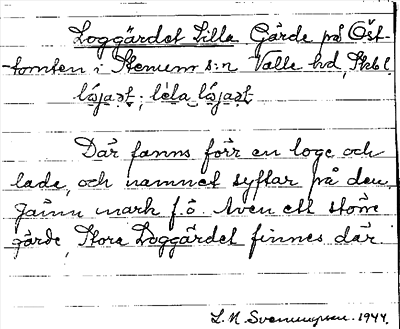 Loggärdet Lilla. Gärde på Öst-
tomten i Stenums s:n Valle hd, Skbl.
lǻjaʒt; lèla lǻjaʒt
Där fanns förr en loge och
lade, och namnet syftar på den.
Jämn mark f.ö. Även ett större
gärde, Stora Loggärdet finnes där.
1944.